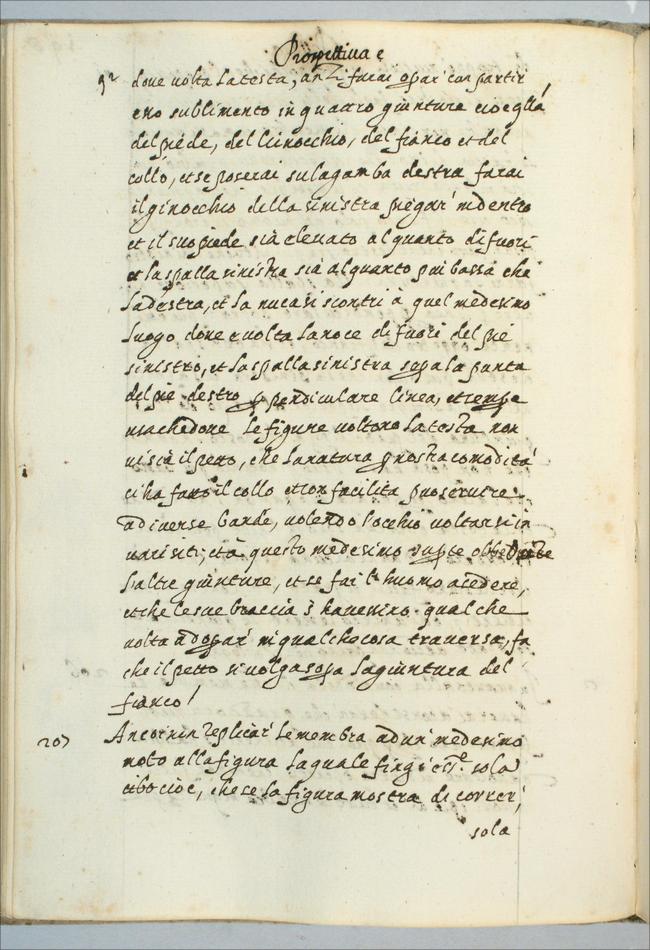 Prospettiua e
doue uolta la testa, anzi farai opar' con partir
eno sublimento in quattro giunture cioe glla'
del piede, del Ginocchio, del fianco et del
collo, et se poserai su la gamba destra farai
il ginocchio della sinistra piegar' indentro
et il suo piede sia eleuato alquanto di fuori
et la spalla sinistra sia alquanto piu bassa che
la destra, et la nuca si scontri à quel medesimo
luogo doue e uolta la noce di fuori del pie
sinistro, et la spalla sinistra sopa la punta
del pie destro p pendiculare linea, et sempe
usa che doue le figure uoltono la testa non
ui sia il petto, che la natura p nostra comodità
ci ha fatto il collo et con facilita puo seruire
a diuerse bande, uolendo l'occhio uoltarsi in
uari siti; et à questo medesimo
l'altre giunture, et se fai l'huomo asedere,
et che le sue braccia s' hauessino qual che
uolta adopar' in qualche cosa trauersa, fa
che il petto si uolga sopa la giuntura del
fianco!
207 Ancor non replicar' le membra ad un' medesimo
moto alla figura la quale fingi sola
cibo cioè, che se la figura mostra di correr',
sola